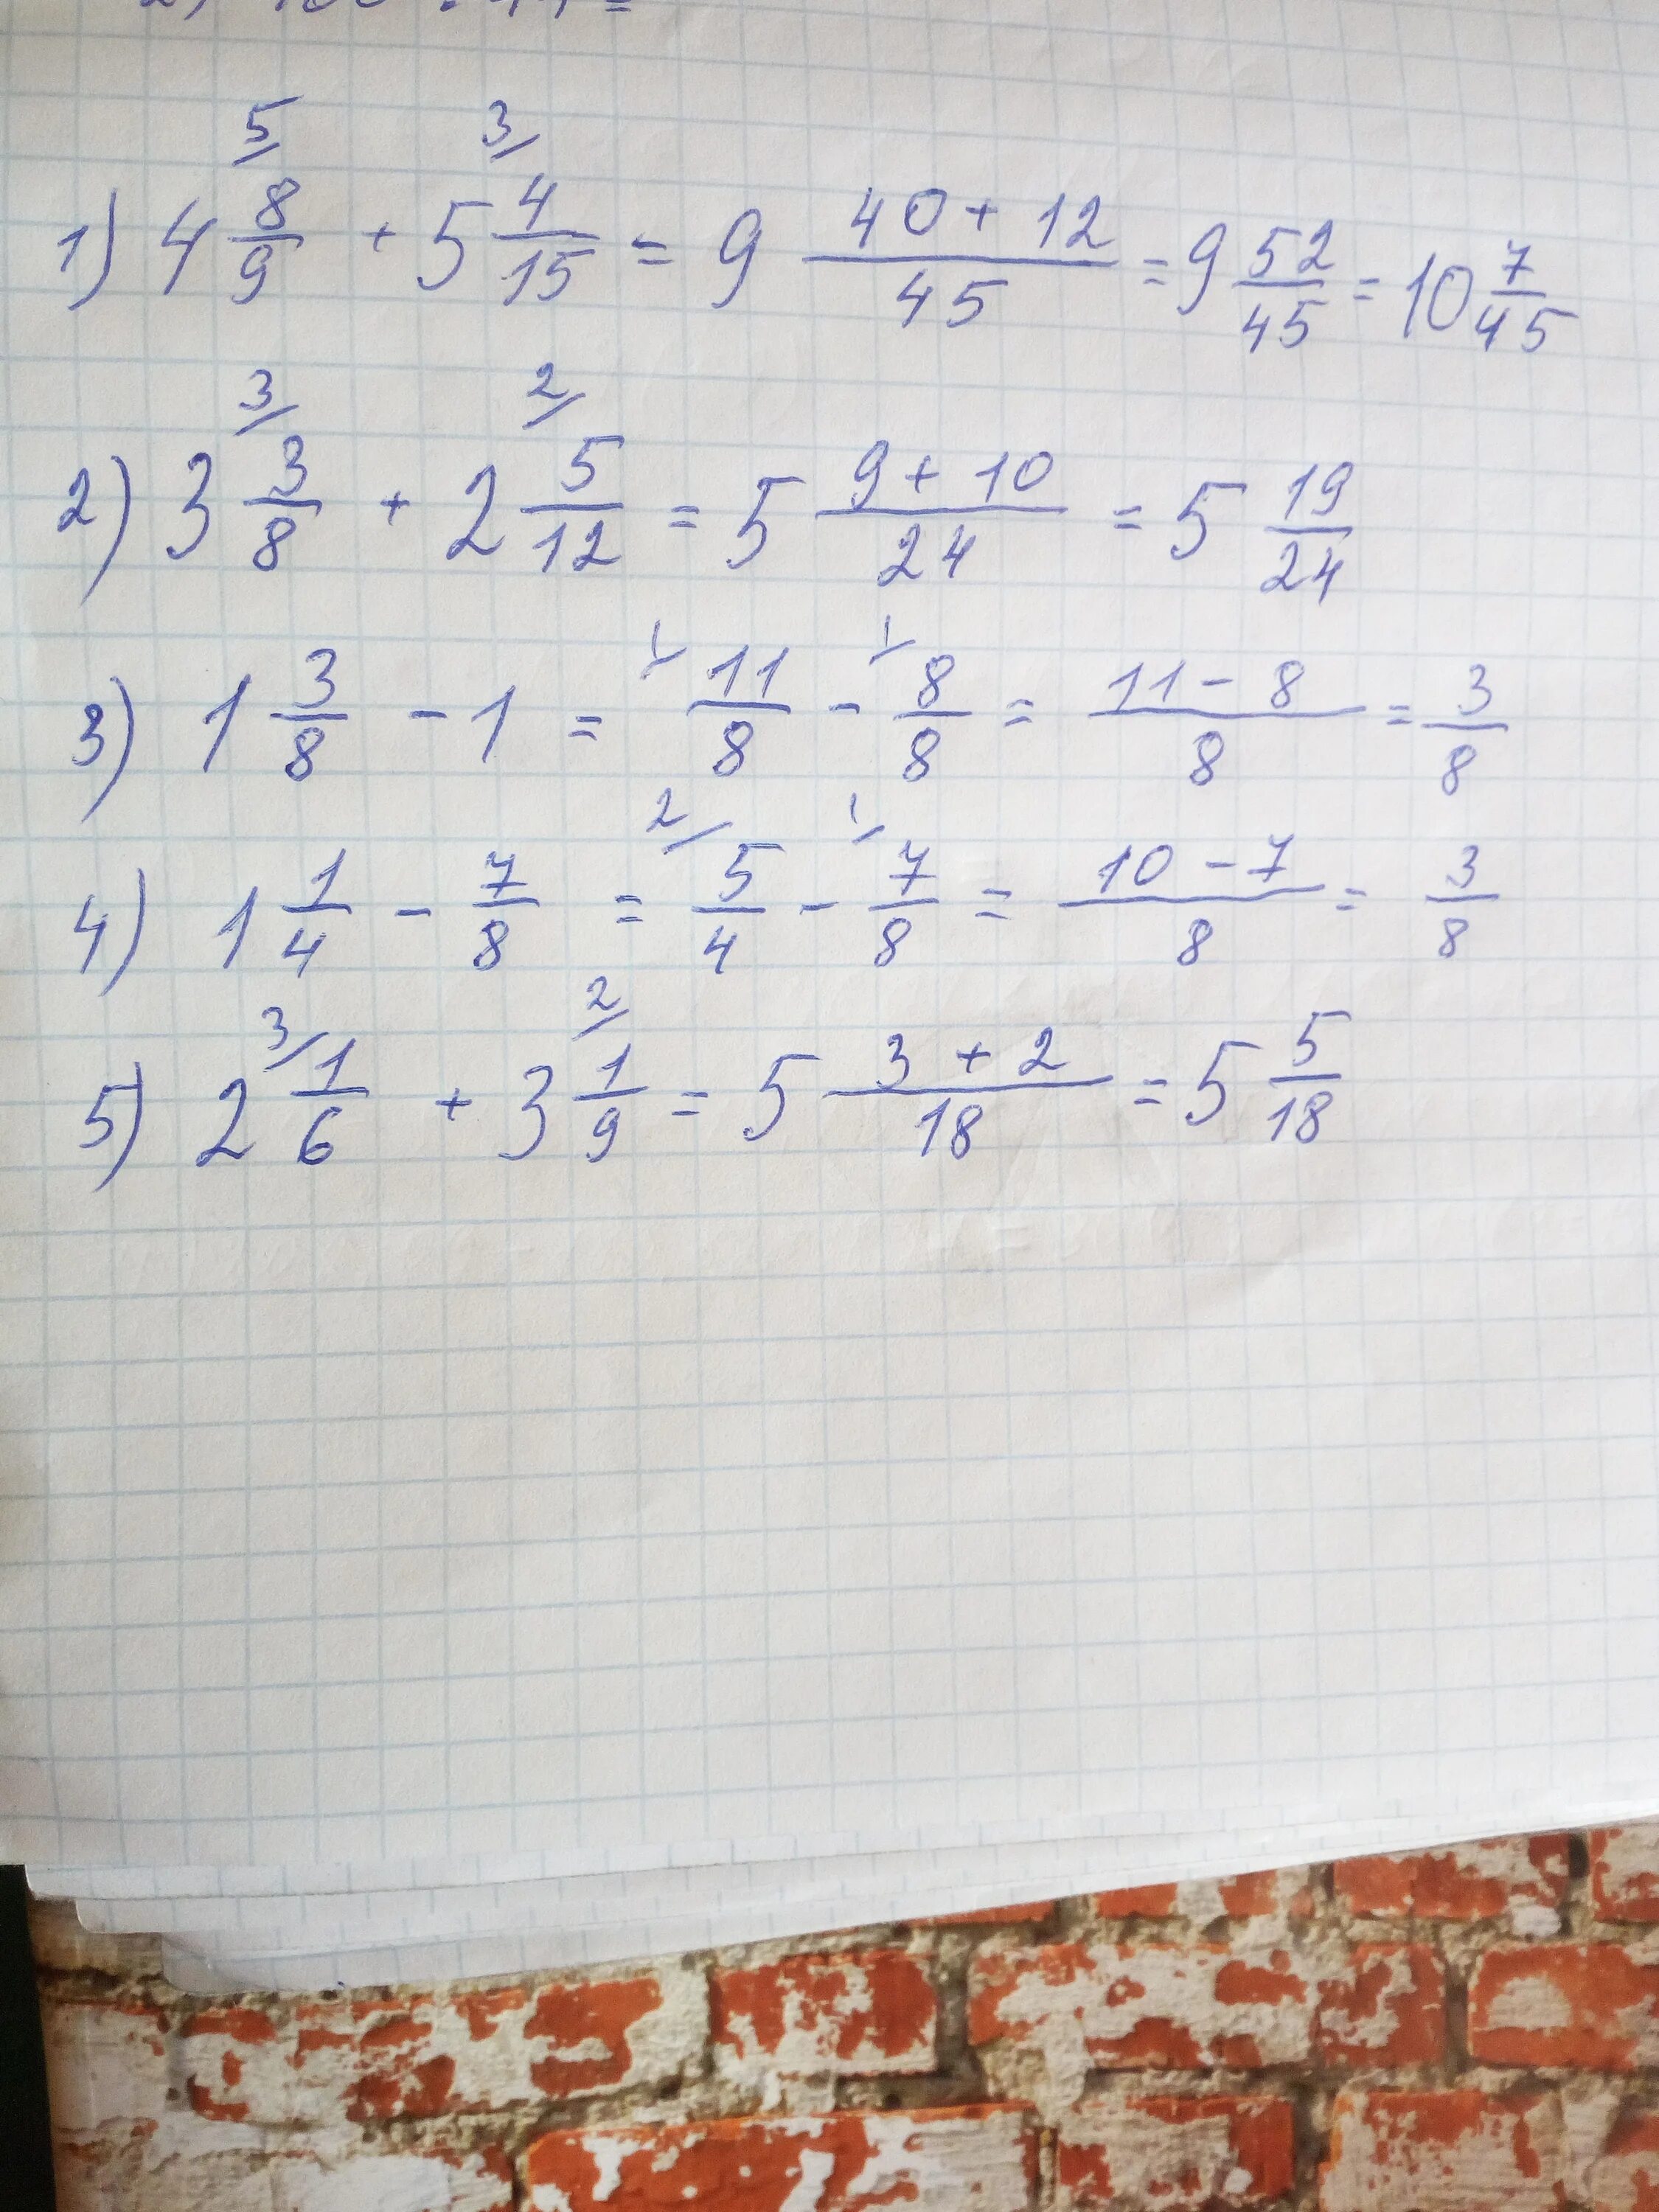 5/ 3/
1) 4 8/9 + 5 4/15 = 9 40+12/45 = 9 52/45 = 10 7/45
3/ 2/
2) 3 3/8 + 2 5/12 = 5 9+10/24 = 5 19/24
1/ 1/
3) 1 3/8 - 1 = 11/8 - 8/8 = 11-8/8 = 3/8
2/ 1/
4) 1 1/4 - 7/8 = 5/4 - 7/8 = 10-7/8 = 3/8
3/ 2/
5) 2 1/6 + 3 1/9 = 5 3+2/18 = 5 5/18